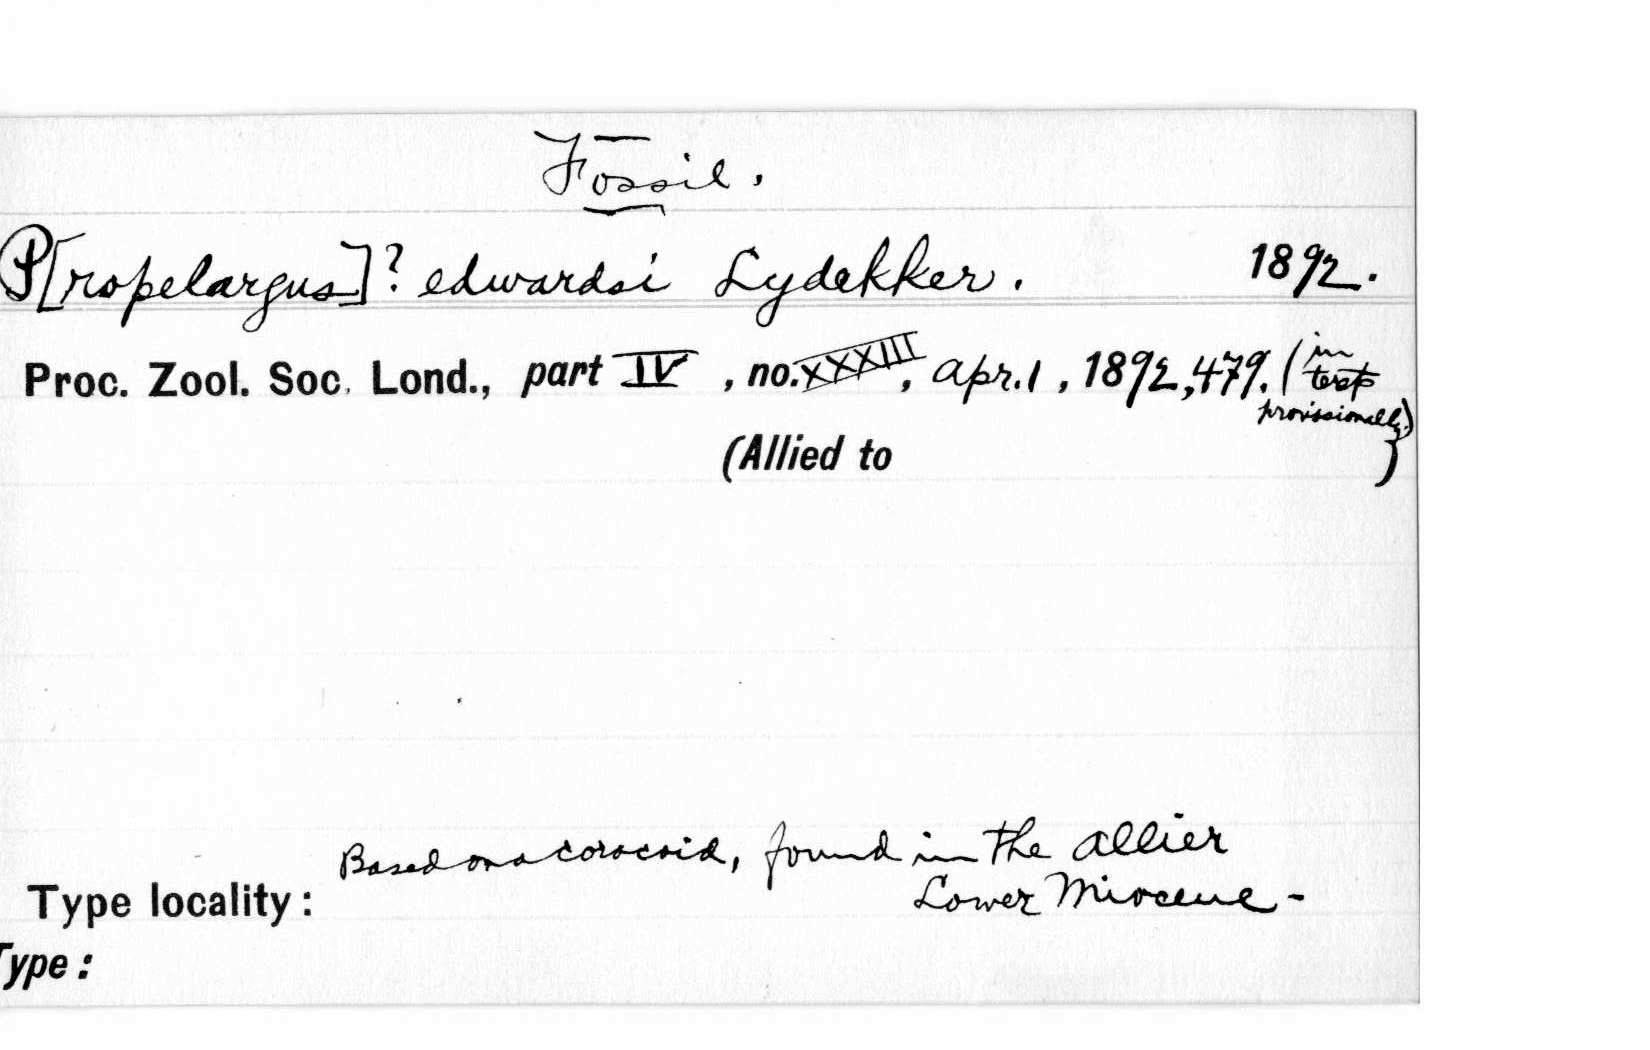 Fossil.
P[ropelargus]? edwardsi Lydekker. 1892.
Proc. Zool. Soc. Lond., part IV, no. XXXIII, Apr. 1, 1892, 479. (in
text
provisionally.)
(Allied to )
Based on a coracoid, found in the Allier
Type locality: Lower Miocene -
Type: